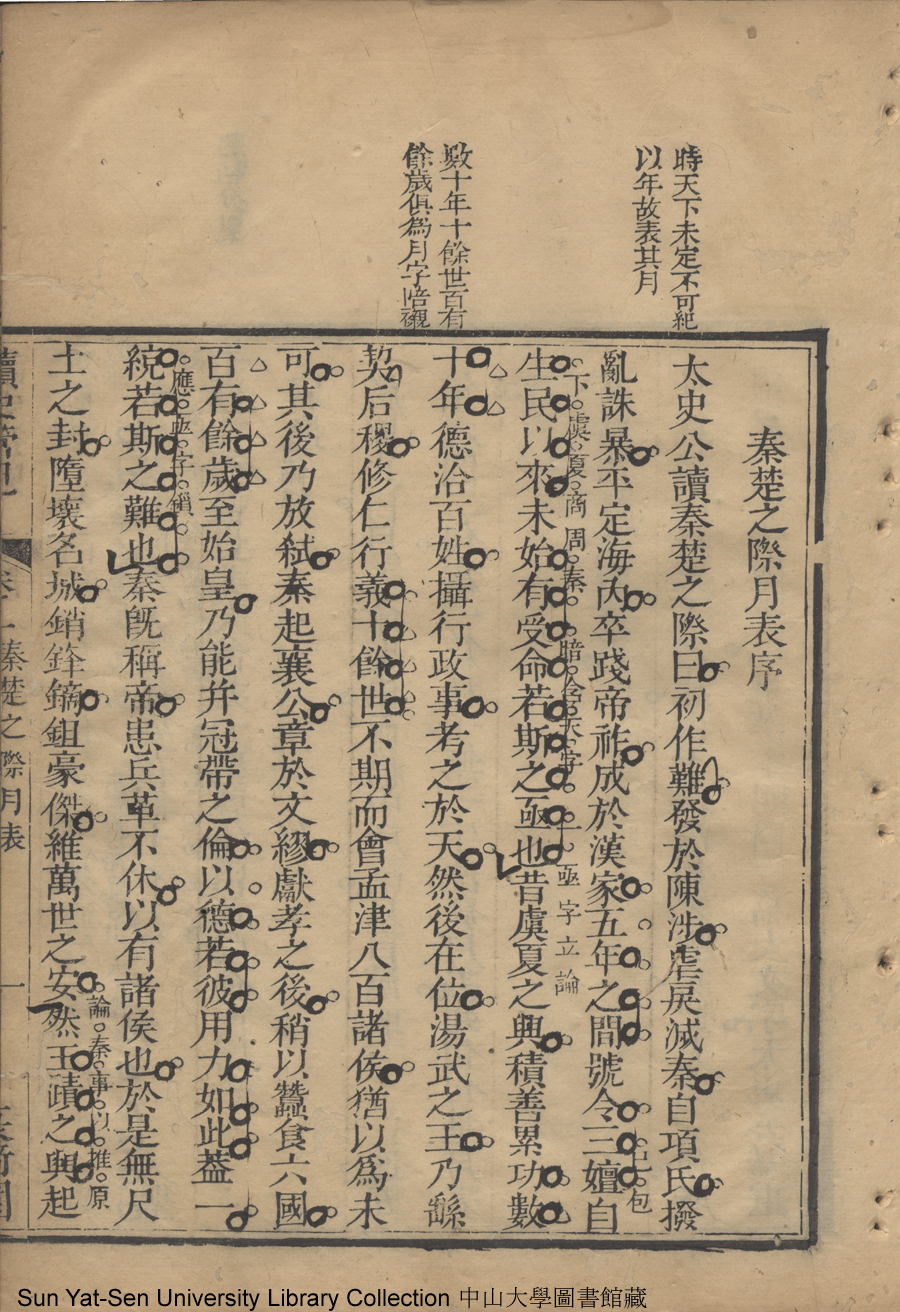 時天下未定不可紀
以年故表其月
數十年十餘世百有
餘歲俱為月字暗襯
秦楚之際月表序
太史公讀秦楚之際曰初作難發於陳涉虐戾滅秦自項氏撥
亂誅暴平定海內卒踐帝祚成於漢家五年之間號令三嬗自
已包
下虞夏商周秦
暗含天字
亟字立論
生民以來未始有受命若斯之亟也昔虞夏之興積善累功數
十年德洽百姓攝行政事考之於天然後在位湯武之王乃繇
契后稷修仁行義十餘世不期而會孟津八百諸侯猶以為未
可其後乃放弒秦起襄公章於文繆獻孝之後稍以蠶食六國
百有餘歲至始皇乃能并冠帶之倫以德若彼用力如此葢一
應亟字鎖
統若斯之難也秦旣稱帝患兵革不休以有諸侯也於是無尺
論秦事以推原
土之封墮壞名城銷鋒鏑鉏豪傑維萬世之安然王蹟之興起
秦楚之際月表
一
Sun Yat-Sen University Library Collection 中山大學圖書館藏